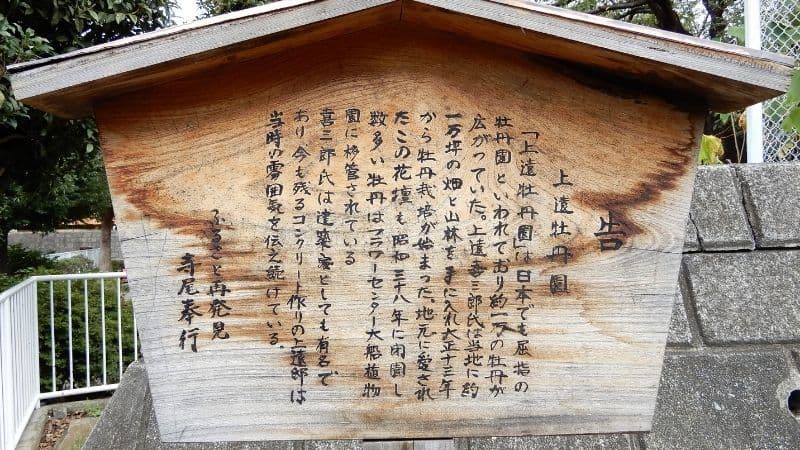 告
上遠牡丹園
「上遠牡丹園」は日本でも屈指の
牡丹園といわれており約一万の牡丹が
広がっていた。上遠喜三郎氏は当地に約
一万坪の畑と山林を手に入れ大正十三年
から牡丹栽培が始まった。地元に愛され
たこの花壇も昭和三十八年に閉園し
数多い牡丹はフラワーセンター大船植物
園に移管されている
喜三郎氏は建築家としても有名で
あり今も残るコンクリート作りの上遠邸は
当時の雰囲気を伝え続けている。
ふるさと再発見
寺尾奉行